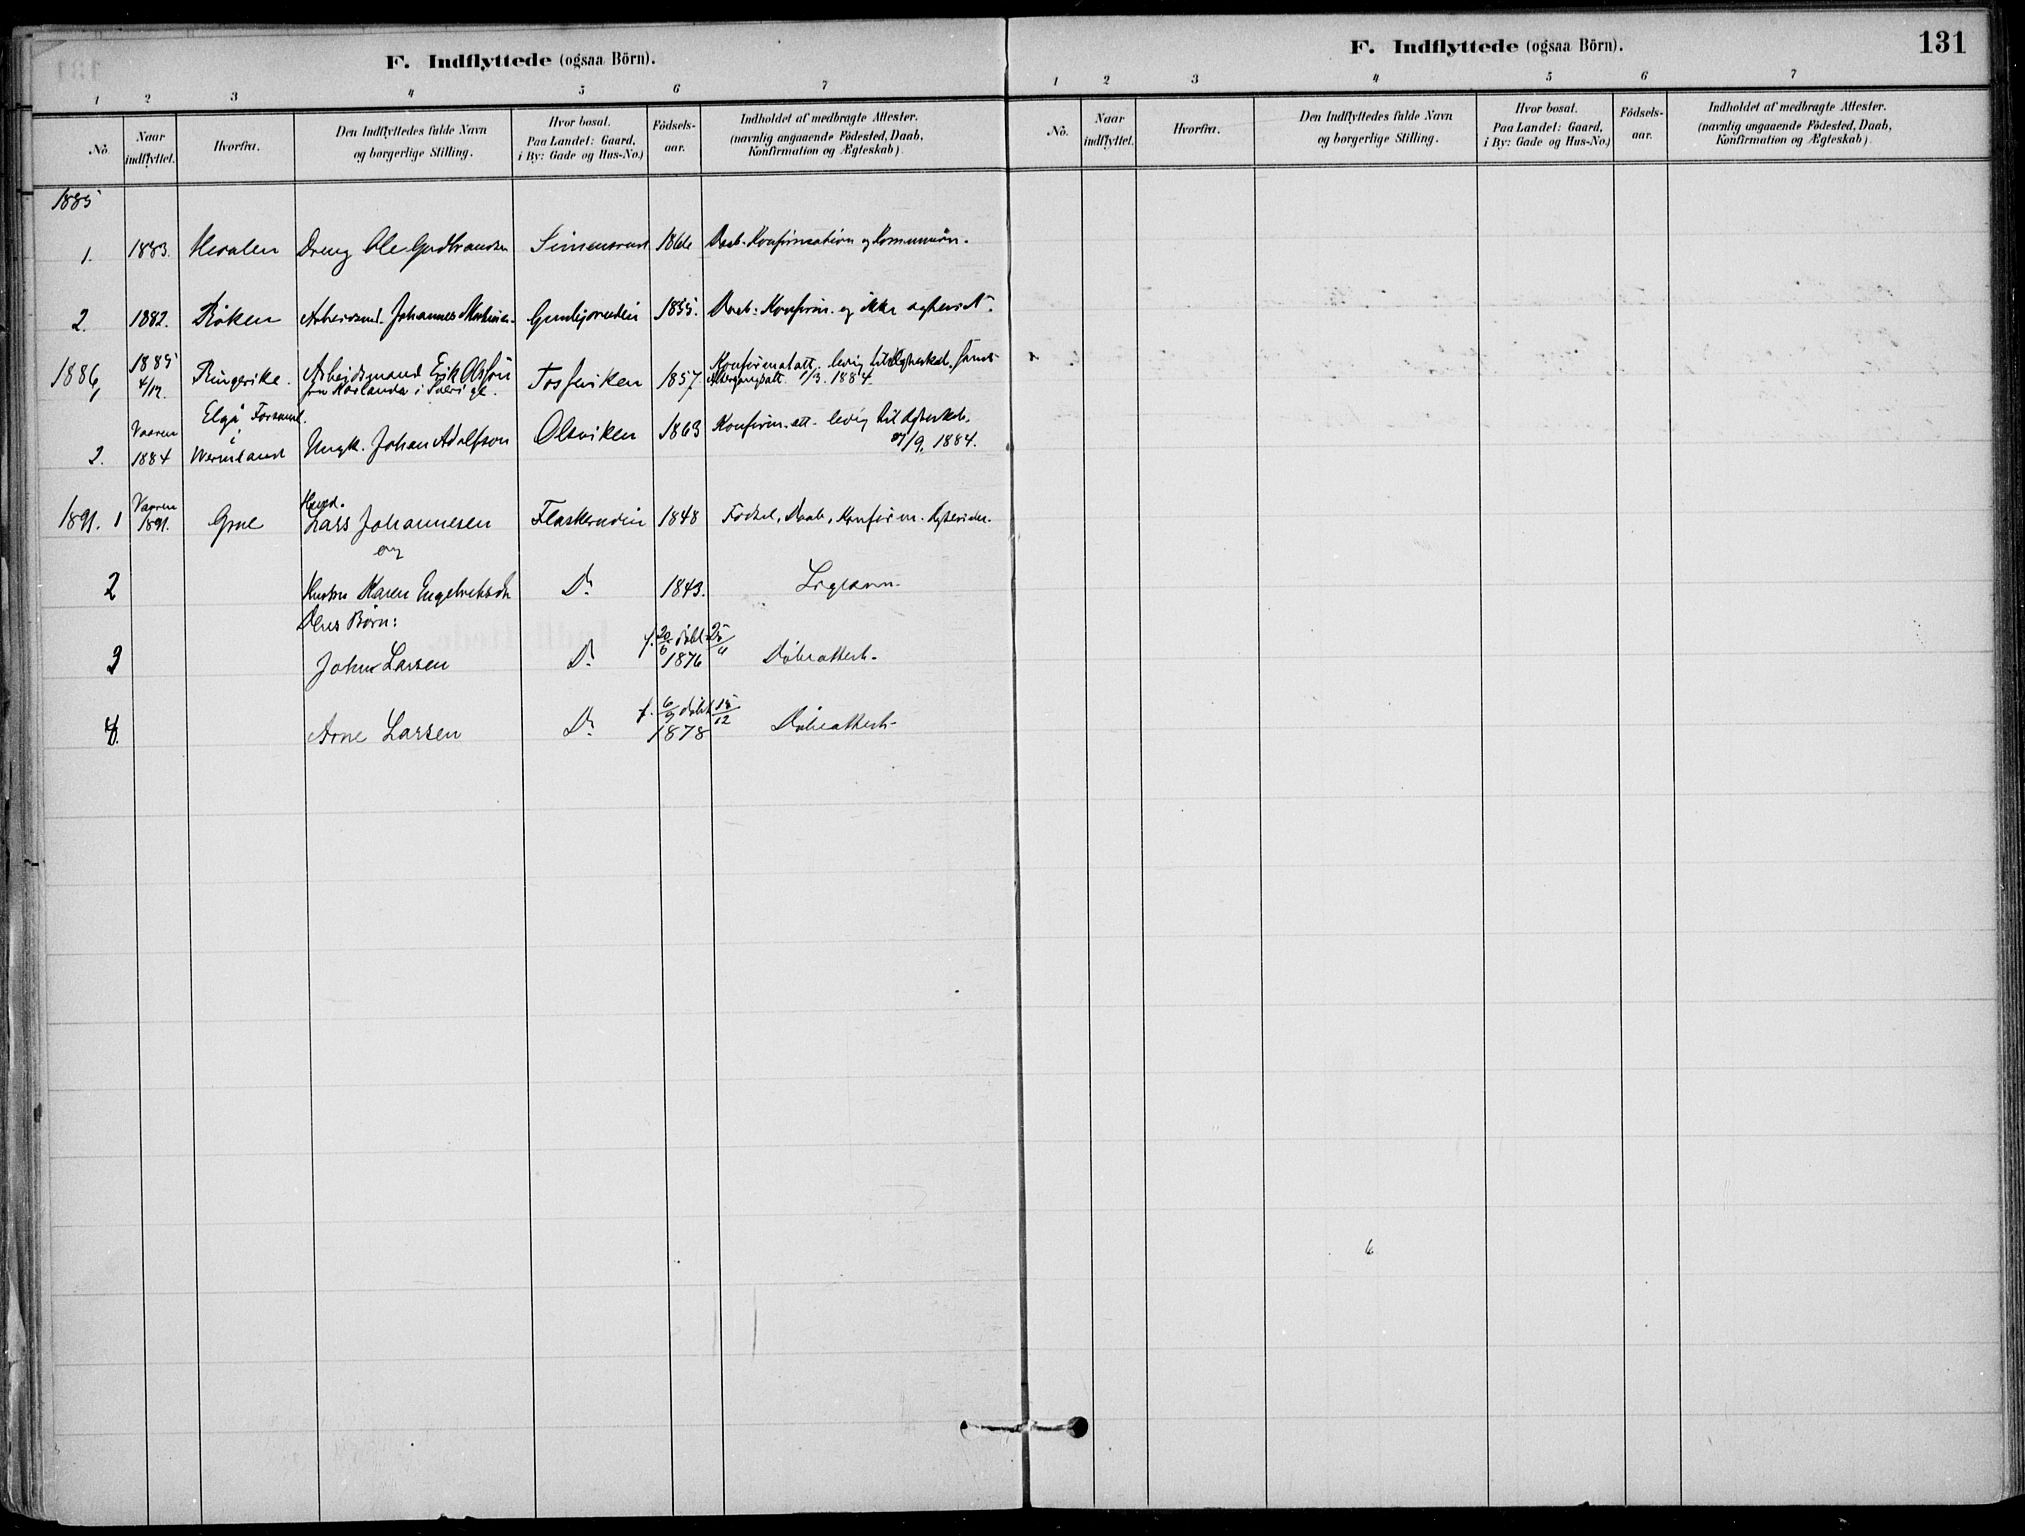 F. Indflyttede (ogsaa Börn).
1 2 3 4 5 6 7
No. Naar indflyttet. Hvorfra. Den Indflyttedes fulde Navn og borgerlige Stilling. Hvor bosat. Paa Landet: Gaard, i By: Gade og Hus-No.) Födsels-aar. Indholdet af medbragte Attester. (navnlig angaaende Födested, Daab, Konfirmation og Ægteskab).
1885
1. 1883. Hvalen Dreng Ole Gudbrandsen Simensrud 1866 Daab. Konfirmation og Kommunion.
2. 1882. Röken Arbeidsmd. Johannes 1855. Daab. Konfirm. og ikke
1886, 1885 4/12. Ringerike. Arbeidsmand Erik Olsson Fosserviken 1857. Konfirmatatt. ledig til Ægteskab, samt
fra Karlanda i Sverige. 1/3. 1884
Elgå Forsaml.
2. Vaaren 1884 i Wermland Ungk. Johan Adolfson Olsviken 1863 Konfirm. att. ledig til Ægtesk.
/9. 1884.
1891. 1 Vaaren 1891. Grue Husmd. Lars Johannesen Flaskerudin 1848 Födsel, Daab, Konfirm.
og
2 Hustru Karen Engelbrektsdr Do. 1843. Ligesom
Deres Börn:
3 Johan Larsen Do. f. 20/6 döbt 25/11 1876 Döbeattest.
4. Arne Larsen Do. f. 6/9 döbt 15/12 1878 Döbeattest.
F. Indflyttede (ogsaa Börn).
131
1 2 3 4 5 6 7
No. Naar indflyttet. Hvorfra. Den Indflyttedes fulde Navn og borgerlige Stilling. Hvor bosat. Paa Landet: Gaard, i By: Gade og Hus-No.) Födsels-aar. Indholdet af medbragte Attester. (navnlig angaaende Födested, Daab, Konfirmation og Ægteskab).